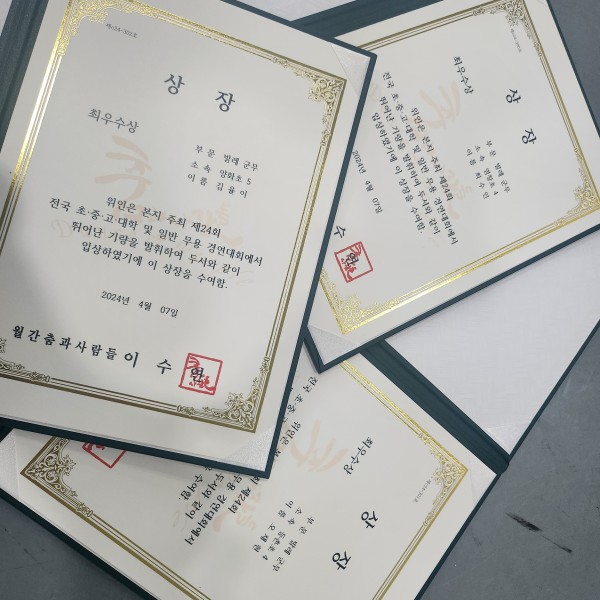 상 장
최우수상
부 문 발레 군무
소 속 양화초 5
이 름 김 율 이
위인은 본지 주최 제24회
전국 초·중·고·대학 및 일반 무용 경연대회에서
뛰어난 기량을 발휘하여 두서와 같이
입상하였기에 이 상장을 수여함.
2024년 4월 07일
월간춤과사람들 이 수 연
상 장
최우수상
부 문 발레 군무
소 속
이 름 최 수 인
위인은 본지 주최 제24회
전국 초·중·고·대학 및 일반 무용 경연대회에서
뛰어난 기량을 발휘하여 두서와 같이
입상하였기에 이 상장을 수여함.
2024년 4월 07일
수 연
상 장
최우수상
부 문 발레 군무
소 속 등촌초 4
이 름 오 채 현
위인은 본 제24회
전국 초·중 무용 경연대회에서
두서와 같이
수여함.